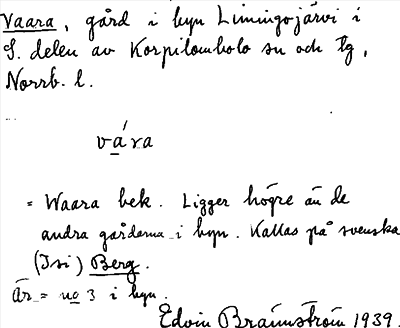 Vaara, gård i byn Limingojärvi i
S. delen av Korpilombolo sn och tg,
Norrb. l.
vára
= Waara bek. Ligger högre än de
andra gårdarna i byn. Kallas på svenska
(Isi) Berg.
Är = no 3 i byn.
Edvin Brännström 1939.